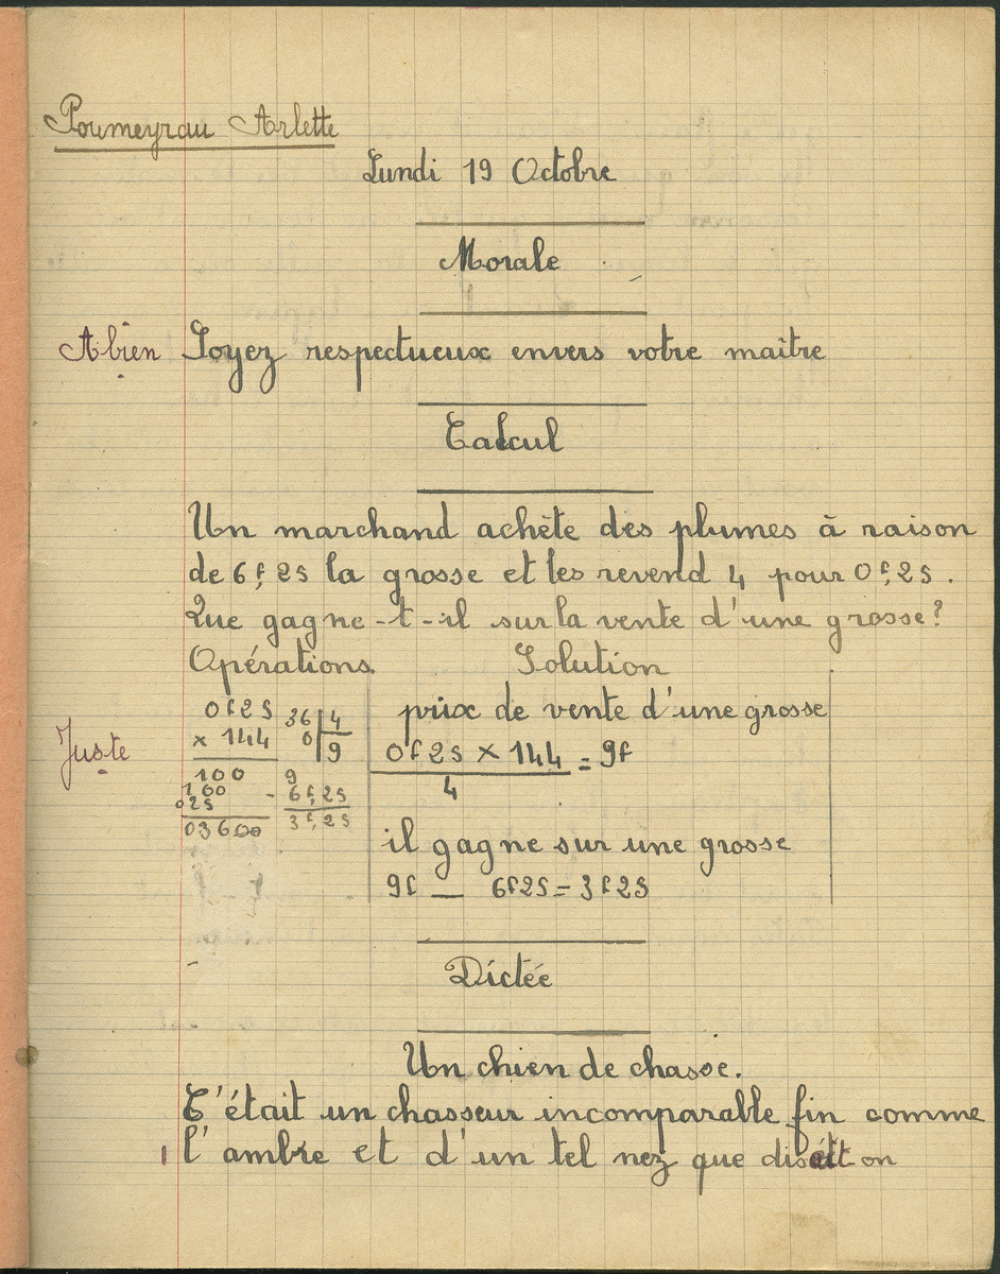 Poumeyrau Arlette
Lundi 19 Octobre
Morale
A bien Soyez respectueux envers votre maître
Calcul
Un marchand achète des plumes à raison
de 6f,25 la grosse et les revend 4 pour 0f,25.
Que gagne-t-il sur la vente d'une grosse?
Opérations. Solution
0f25 36 4 prix de vente d'une grosse
x 144 0 9
Juste 0f25 x 144 = 9f
4
100 9
100 - 6f,25
025 3f,25
03600
il gagne sur une grosse
9f — 6f25 = 3f25
Dictée
Un chien de chasse.
C'était un chasseur incomparable fin comme
1 l'ambre et d'un tel nez que disait on